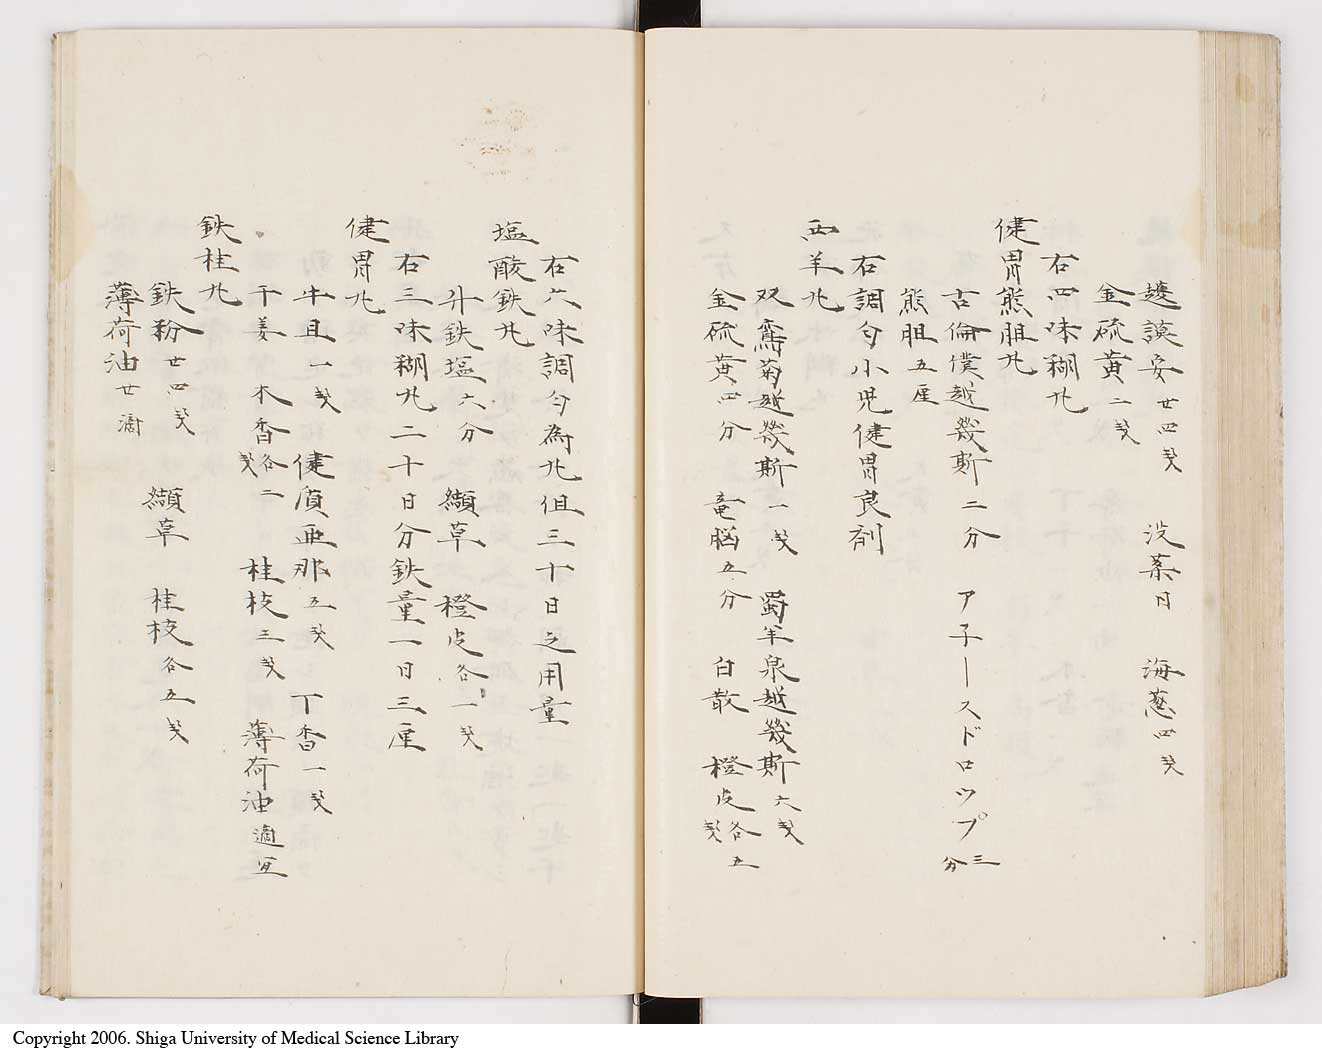 蘹謨安廿四戔 没薬日 海葱四戔
金硫黄二戔
右四味糊丸
健胃熊胆丸
古倫僕越幾斯二分 ア子ースドロツプ三分
熊胆五厘
右調匀小児健胃良剤
西羊丸
双鸞菊越幾斯一戔 蜀羊泉越幾斯六戔
金硫黄四分 竜脳五分 白散 橙皮各五戔
右六味調匀為丸但三十日之用量
塩酸鉄丸
升鉄塩六分 纈草 橙皮各一戔
右三味糊丸二十日分鉄量一日三厘
健胃丸
牛胆一戔 健質亜那五戔 丁香一戔
干姜 木香各二戔 桂枝三戔 薄荷油適宜
鉄桂丸
鉄粉廿四戔 纈草 桂枝各五戔
薄荷油廿滴
Copyright 2006. Shiga University of Medical Science Library